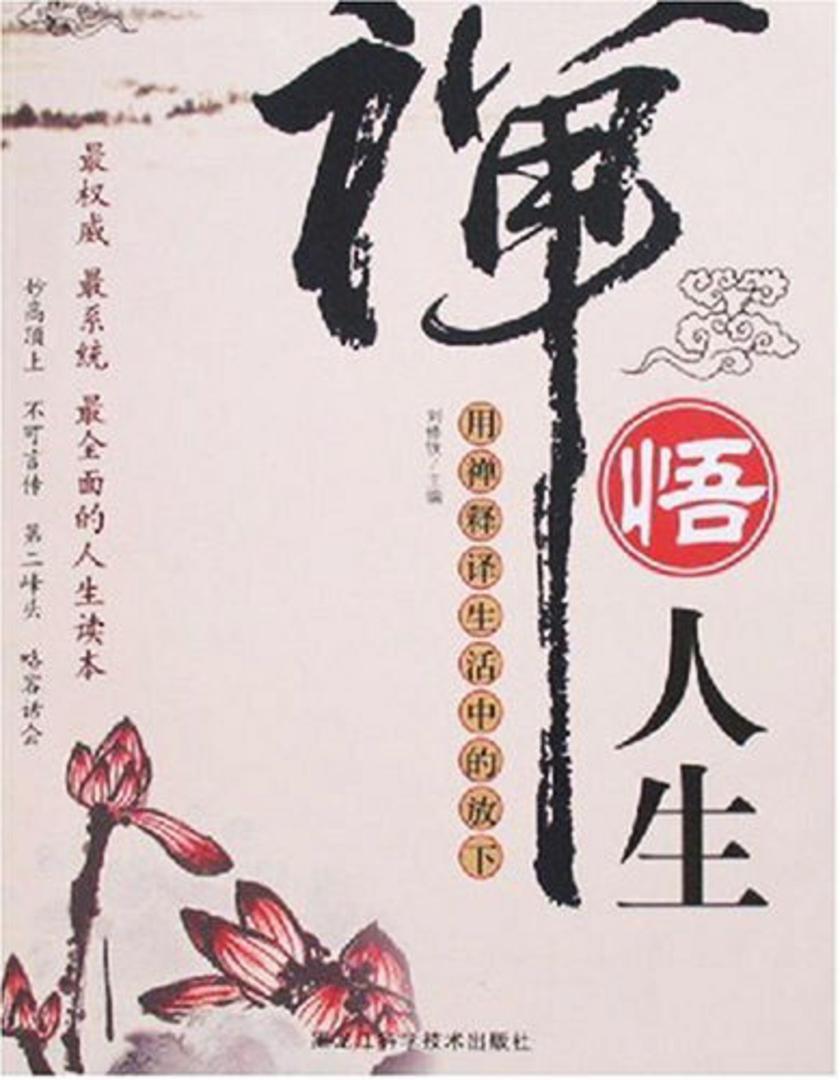 禅
悟
人生
用禅释译生活中的放下
刘修铁/主编
最权威 最系统 最全面的人生读本
妙高顶上 不可言传 第二峰头 略容话会
黑龙江科学技术出版社